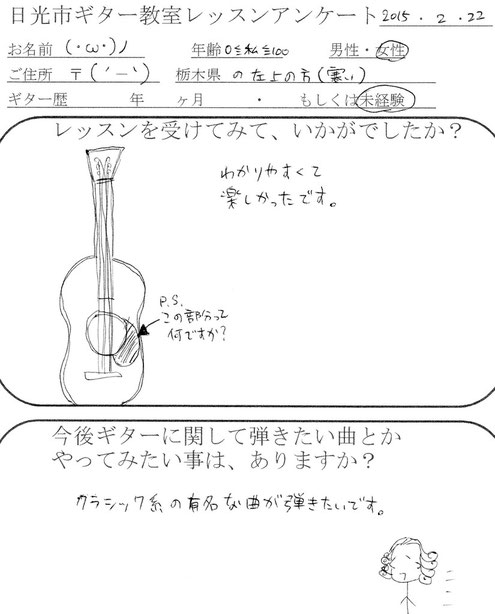 日光市ギター教室レッスンアンケート2015.2.22
お名前 (・ω・)ノ 年齢 0≦私≦100 男性・女性
ご住所 〒(´ー`) 栃木県の左上の方(寒い)
ギター歴 年 ヶ月 ・ もしくは未経験
レッスンを受けてみて、いかがでしたか?
わかりやすくて
楽しかったです。
P.S.
この部分って
何ですか?
今後ギターに関して弾きたい曲とか
やってみたい事は、ありますか?
クラシック系の有名な曲が弾きたいです。